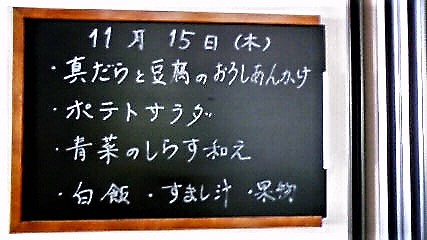 11月15日(木)
・真だらと豆腐のおろしあんかけ
・ポテトサラダ
・青菜のしらす和え
・白飯 ・すまし汁 ・果物